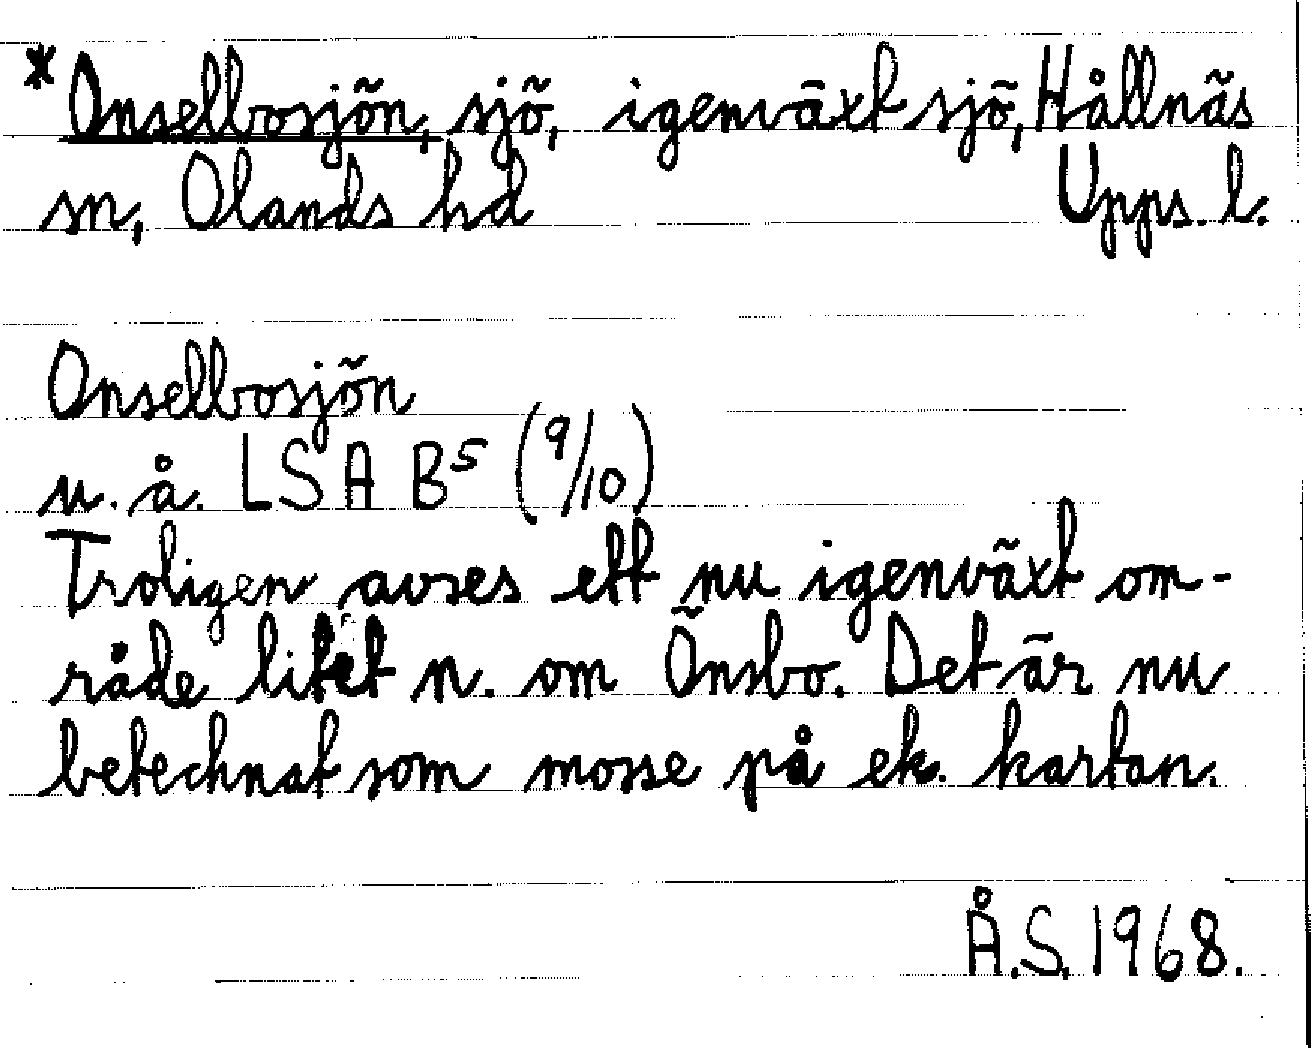 * Onsellbosjön, sjö, igenväxt sjö, Hållnäs
sn, Olands hd Upps. l.
Onsellbosjön
u. å. LSA B5 (9/10)
Troligen avses ett nu igenväxt om-
råde litet n. om Önsbo. Det är nu
betechnat som mosse på ek. kartan.
Å.S. 1968.